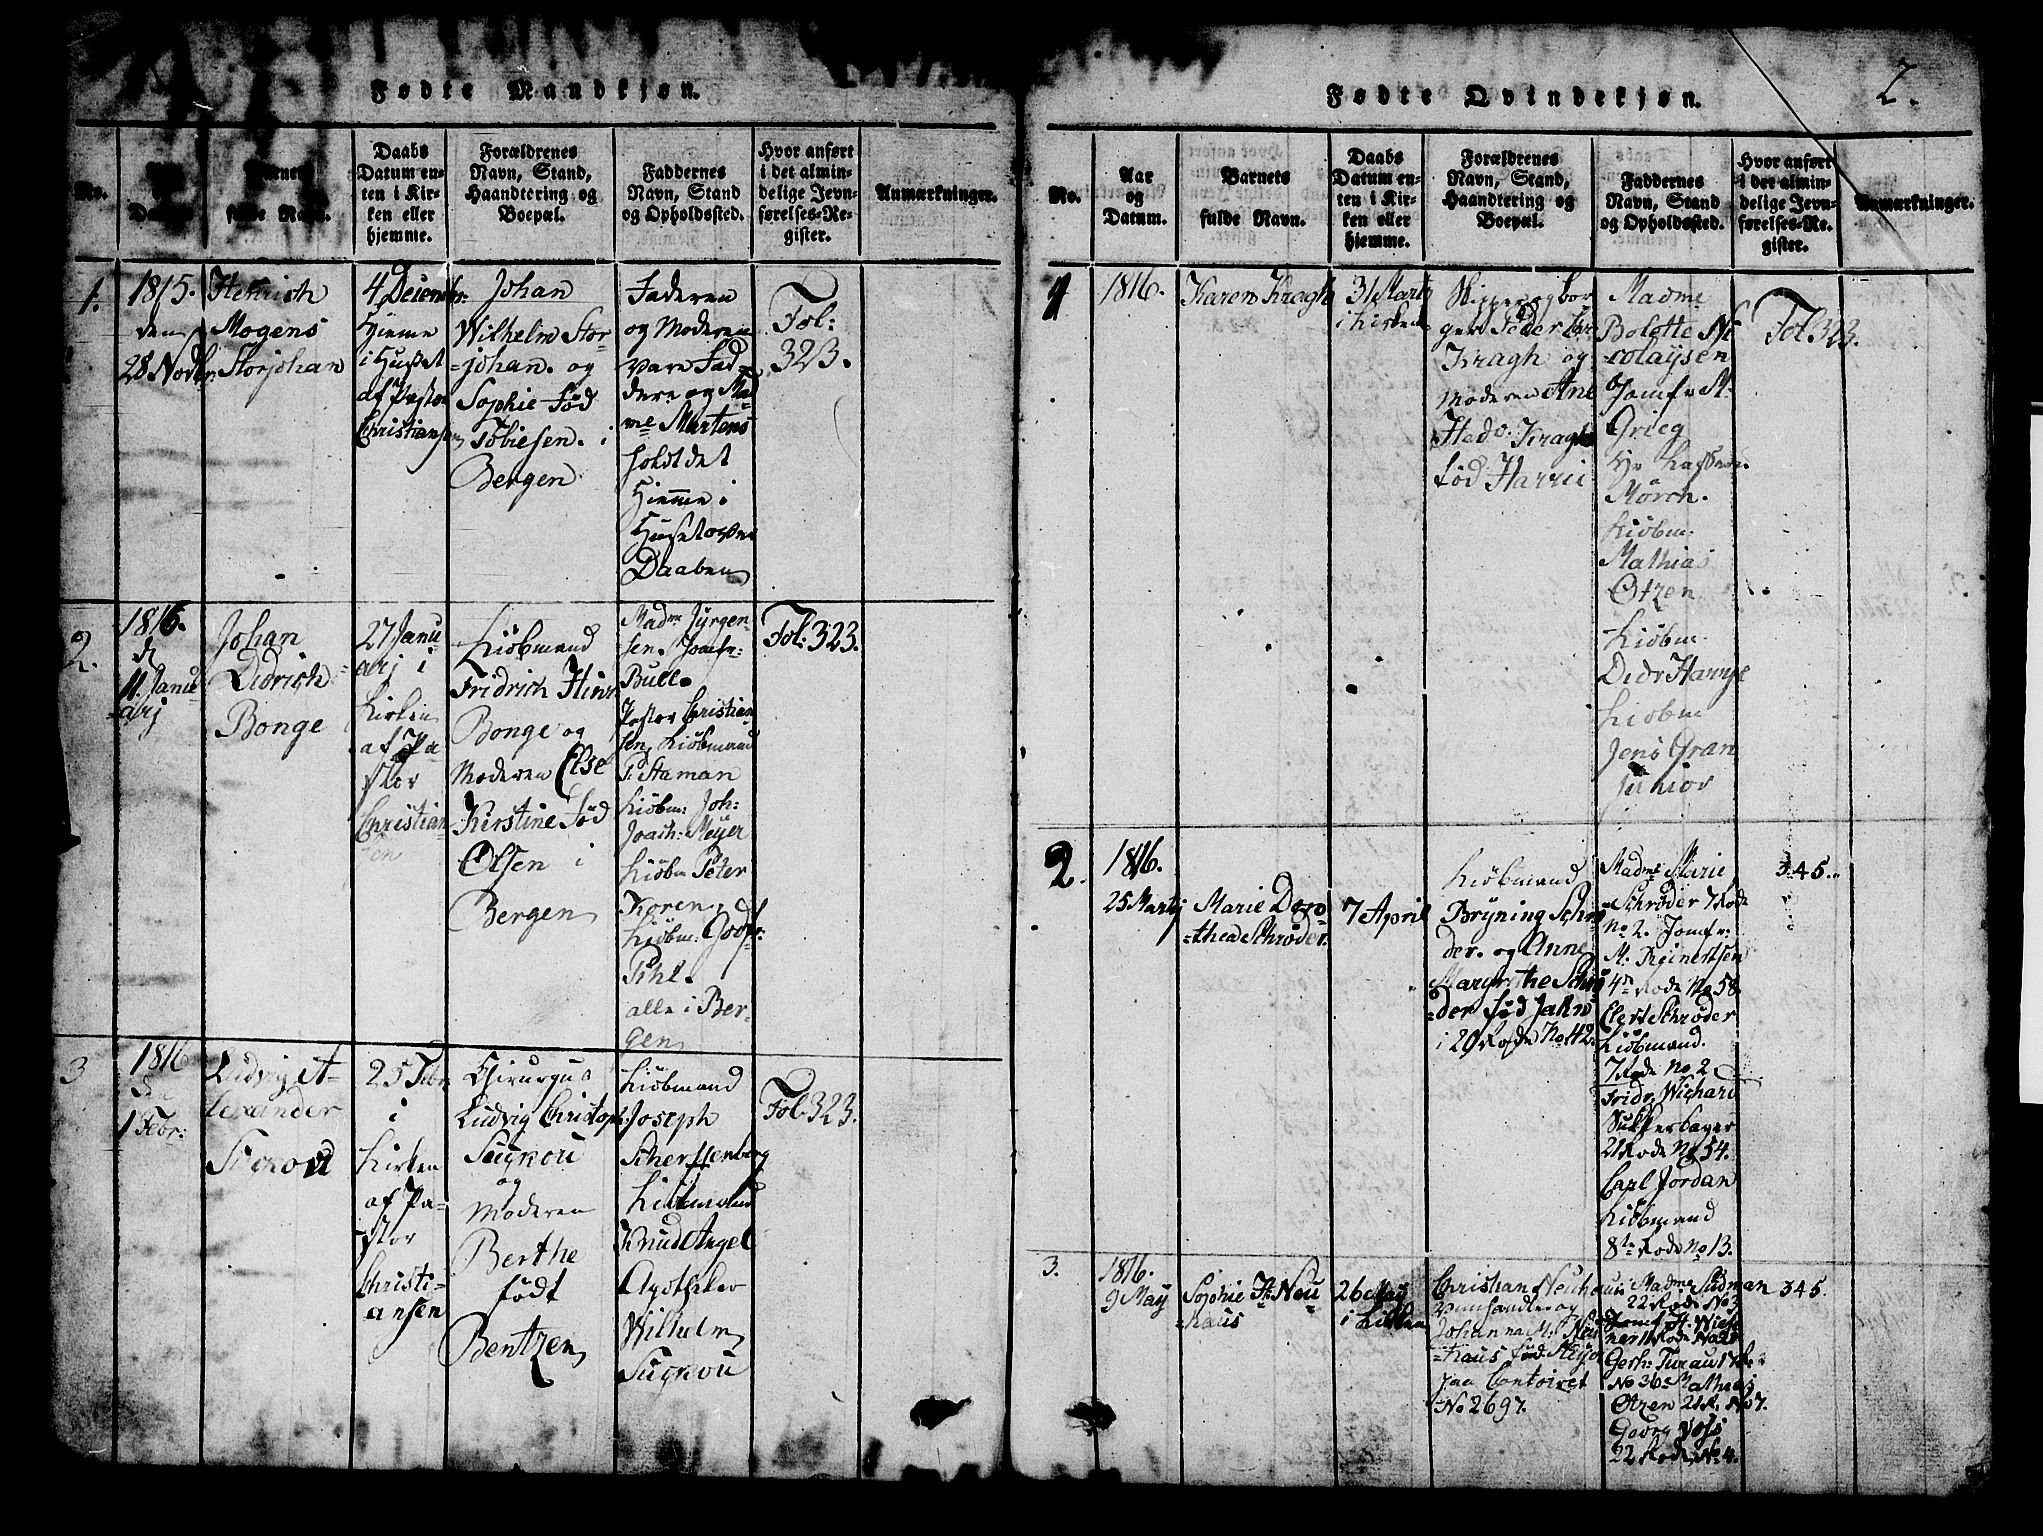 Fødte Mandkjøn.
No.
Datum.
Barnets
fulde Navn.
Daabs
Datum en-
ten i Kir-
ken eller
hjemme.
Forældrenes
Navn, Stand,
Haandtering og
Boepæl.
Faddernes
Navn, Stand
og Opholdssted.
Hvor anført
i det almin-
delige Jevn-
førelses-Re-
gister.
Anmærkninger.
1.
1815.
den
28 Novbr.
Henrich
Mogens
Storjohan
4 Decembr:
Hjeme
i Huset
af Pastor
Christiansen
Johan
Wilhelm Stor-
=johan. og
Sophie Fød
Tobiesen. i
Bergen
Faderen
og Moderen
vare Fad-
dere og Ma-
me Martens
holdt det
Hiemme i
Huset over
Daaben
Fol:
323.
2.
1816.
d
11 Janu
=arj
Johan
Didrich
Bonge
27 Janu
arj i
Kirken
af Pa-
stor
Christian
sen
Kiöbmand
Fridrich Hinr
Bonge og
Moderen Else
Kirstine Fød
Olsen i
Bergen
Madme Jürgen-
sen. Jomfr.
Bull.
Pastor Christian
sen, Kiöbmand
P: Staman
Kiöbm: Joh:
Joach: Meyer
Kiöbm Peter
Koren,
Kiöbm: Godtf:
Pihl.
alle i Ber-
gen
Fol: 323.
3
1816
den
1 Febr:
Ludvig A-
lexander
25 Febr
i
Kirken
af Pa-
stor
Christi-
ansen
Chirurgus
Ludvig Christoph
Suckou
og
Moderen
Berthe
født
Bentzen
Kiöbmand
Joseph
Scherffenberg
Kiöbmand
Knud Angel
Apotheker
Wilhelm
Suckou
Fol 323.
Fødte Qvindekjøn.
2.
No.
Aar
og
Datum.
Barnets
fulde Navn.
Daabs
Datum en-
ten i Kir-
ken eller
hjemme.
Forældrenes
Navn, Stand,
Haandtering og
Boepæl.
Faddernes
Navn, Stand
og Opholdssted.
Hvor anført
i det almin-
delige Jevn-
førelses-Re-
gister.
Anmærkninger.
1
1816.
Karen Kragh
31 Marts
i Kirken
Skipper og bor
ger Peder
Kragh og
Moderen Ane
Kragh
fød Harrie
Madme
Bolotte Ni
=colaysen
Jomfr M:
Grieg
Mörch.
Kiöbm.
Mathias
Otzen
Kiöbm.
Didr Harrye
Kiöbm
Jens Gran
junior
Fol 323.
2.
1816.
25 Martj
Marie Doro
=thea Schrøder.
7 April
Kiöbmand
Bryning Schrö
der. og Anne
Margrethe Schrö
=der Fød Jahn
i 20 Rode No 42.
Madme Marie
Schrøder 7 Rode
No 2. Jomfr:
M: Reinertsen
4de Rode No 58.
Elert Schrøder
Kiöbmand.
7 Rode No 2
Fridr. Wichard
Sukkerbager
21 Rode No 54.
Carl Jordan
Kiöbmand
8te Rode No 13.
345.
3.
1816.
9 May
Sophie H: Neu
=haus
26 May
i Kirken
Christian Neuhaus
Viinhandler og
Johanna M: Neu
=haus fød: Meyer
paa Contoiret
No 2697.
Madme Südman
22 Rode No 3
Jomf H. Wiese
ner 11 Rode No 21
Gerh: Turau 17 R:
No 36 Mathias
Otzen 21 R, No 7.
Georg Voss
22 Rode, No 4.
345.